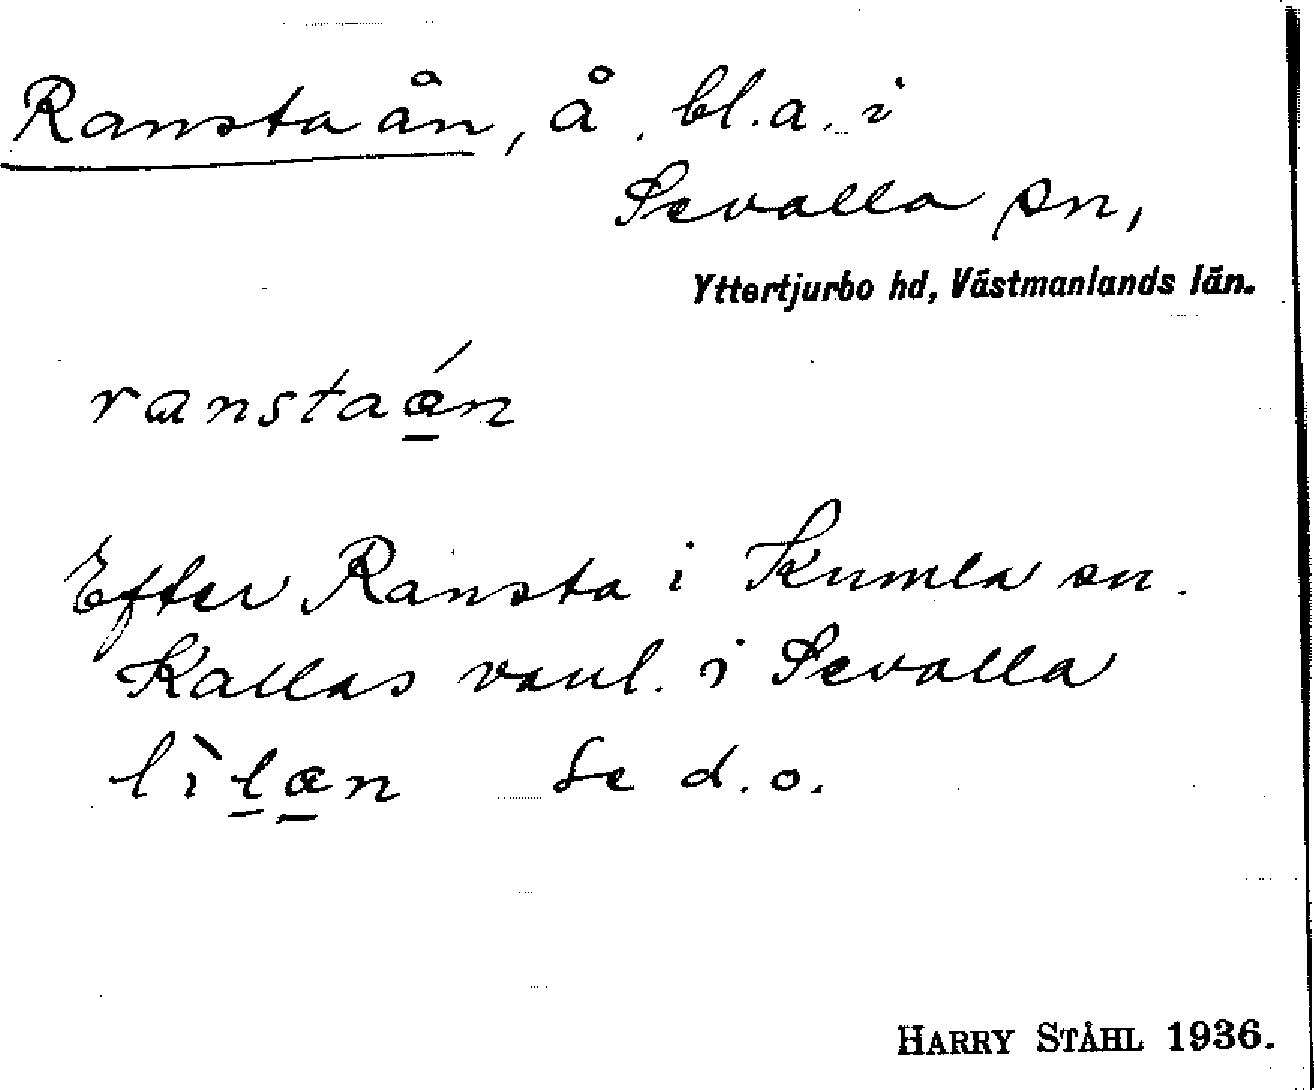 Ranstaån, å, bl.a. i
Sevalla sn,
Yttertjurbo hd, Västmanlands län.
ranstaǻn
Efter Ransta i Kumla sn.
Kallas vanl. i Sevalla
lìlån Se d.o.
HARRY STÅHL 1936.